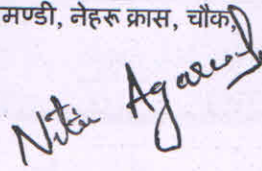 मण्डी, नेहरू क्रास, चौक,
Nitin Agarwal